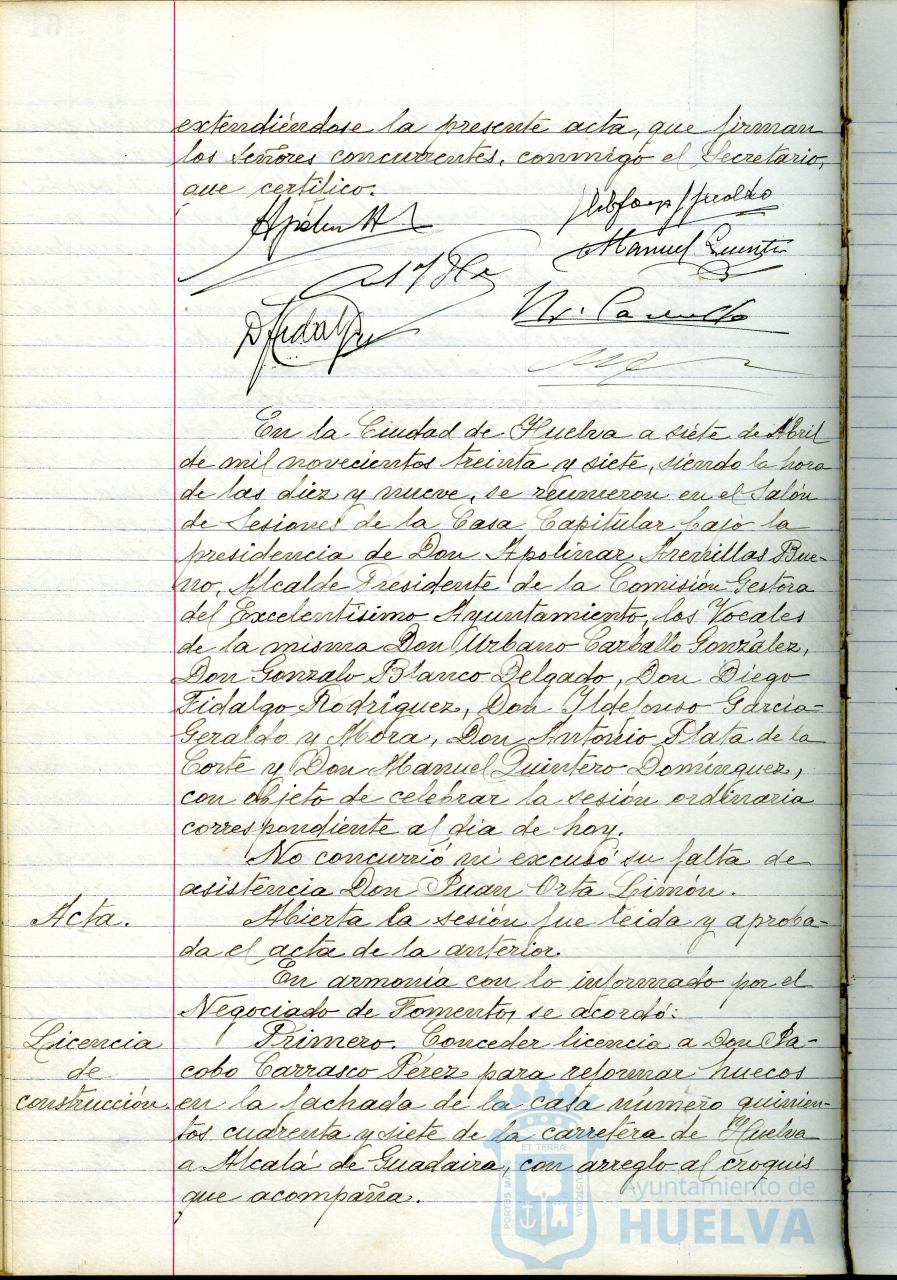 extendiéndose la presente acta, que firman
los señores concurrentes, conmigo el Secretario,
que certifico.
Manuel Quintero
D Fidalgo
En la Ciudad de Huelva a siete de Abril
de mil novecientos treinta y siete, siendo la hora
de las diez y nueve, se reunieron en el Salón
de Sesiones de la Casa Capitular bajo la
presidencia de Don Apolinar Arenillas Bue-
no, Alcalde Presidente de la Comisión Gestora
del Excelentísimo Ayuntamiento, los Vocales
de la misma Don Urbano Carballo González,
Don Gonzalo Blanco Delgado, Don Diego
Fidalgo Rodríguez, Don Ildefonso García-
Geraldo y Mora, Don António Plata de la
Corte y Don Manuel Quintero Domínguez,
con objeto de celebrar la sesión ordinaria
correspondiente al día de hoy.
No concurrió ni excusó su falta de
asistencia Don Juan Orta Limón.
Acta.
Abierta la sesión fue leida y aproba-
da el acta de la anterior.
En armonía con lo informado por el
Negociado de Fomento, se acordó:
Licencia
de
construcción.
Primero. Conceder licencia a Don Ja-
cobo Carrasco Pérez para reformar huecos
en la fachada de la casa número quinien-
tos cuarenta y siete de la carretera de Huelva
a Alcalá de Guadaira, con arreglo al croquis
que acompaña.
PORTUS MARIS ET TERRÆ CUSTODIA
Ayuntamiento de
HUELVA